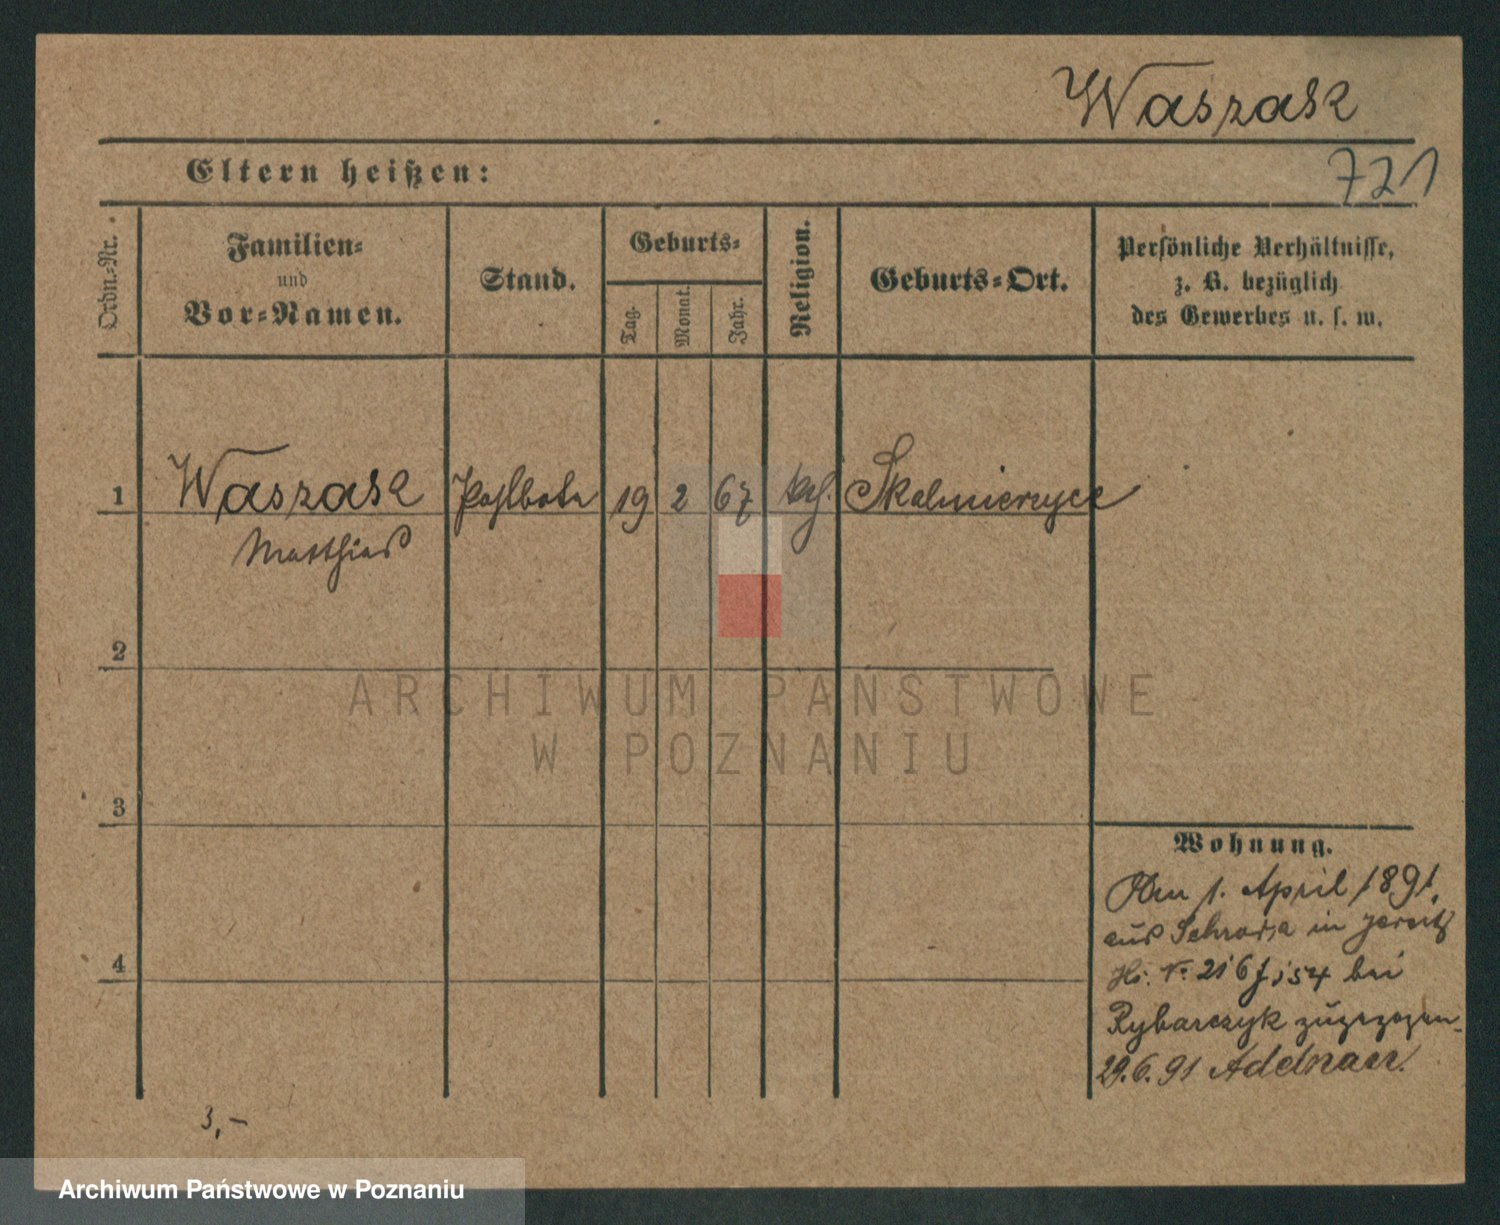 Waszak
721
Eltern heißen:
Ordn.-Nr.
Familien-
und
Vor-Namen.
Stand.
Geburts-
Tag.
Monat.
Jahr.
Religion.
Geburts-Ort.
Persönliche Verhältnisse,
z. B. bezüglich
des Gewerbes u. s. w.
1 Waszak Postbote 19 2 67 kath. Skalmierzyce
Matthias
2
ARCHIWUM PAŃSTWOWE
W POZNANIU
3
Wohnung.
Am 1. April 1891.
aus Schroda in Jersitz
4
No. 216 54 bei
Rybarczyk zugezogen
29.6.91
3,-
Archiwum Państwowe w Poznaniu